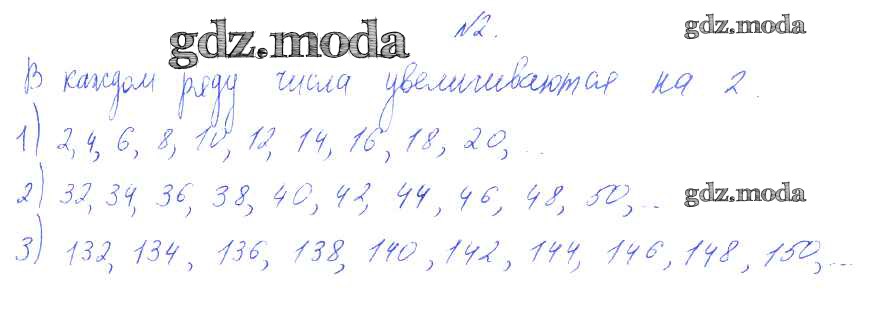 №2.
gdz.moda
gdz.moda
В каждом ряду числа увеличиваются на 2.
1) 2, 4, 6, 8, 10, 12, 14, 16, 18, 20, ...
2) 32, 34, 36, 38, 40, 42, 44, 46, 48, 50, ...
gdz.moda
3) 132, 134, 136, 138, 140, 142, 144, 146, 148, 150, ...